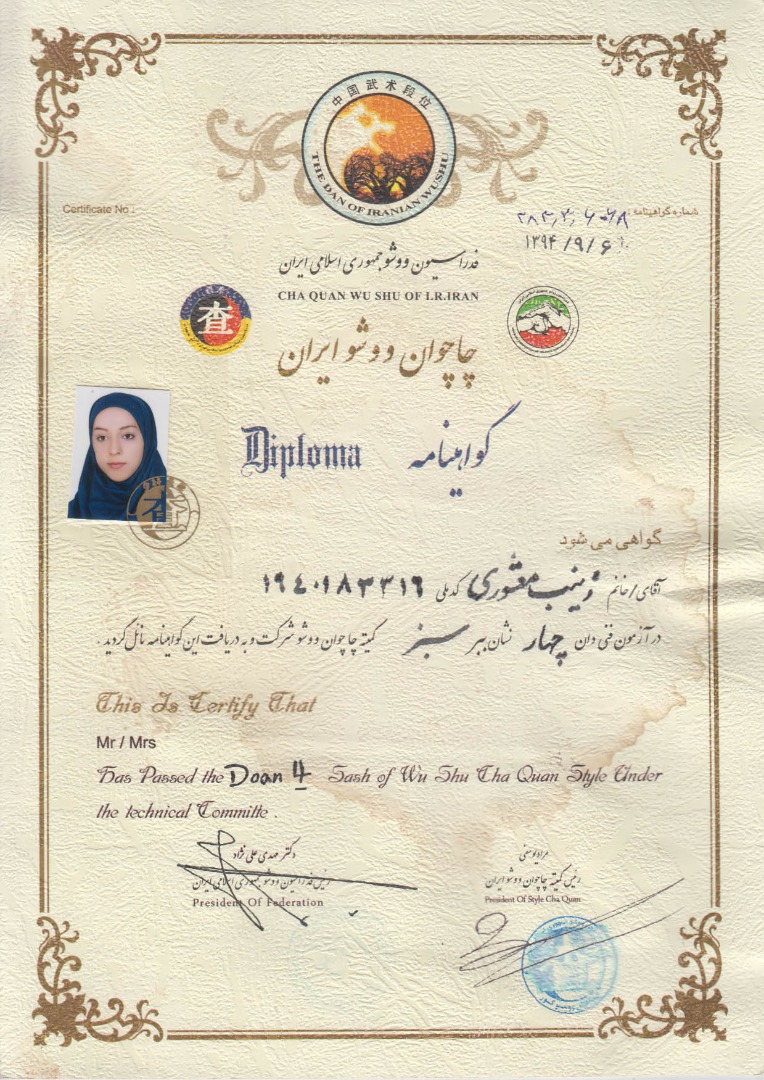 中国武术段位
THE DAN OF IRANIAN WUSHU
Certificate No :
شماره گواهینامه
۱۳۹۴/۹/۶
فدراسیون ووشو جمهوری اسلامی ایران
CHA QUAN WU SHU OF I.R.IRAN
査
چاچوان ووشو ایران
Diploma گواهینامه
گواهی می شود
آقای/خانم زینب کدملی ۱۹٤۰۱۸۳۳۱۶
در آزمون فنی دان چهار نشان ببر سبز کمیته چاچوان ووشو شرکت و به دریافت این گواهینامه نائل گردید.
This Is Certify That
Mr / Mrs
Has Passed the Doan 4 Sash of Wu Shu Cha Quan Style Under
the technical Committe .
دکتر مهدی علی نژاد
رئیس فدراسیون ووشو جمهوری اسلامی ایران
President Of Federation
مراد یوسفی
رئیس کمیته چاچوان ووشو ایران
President Of Style Cha Quan